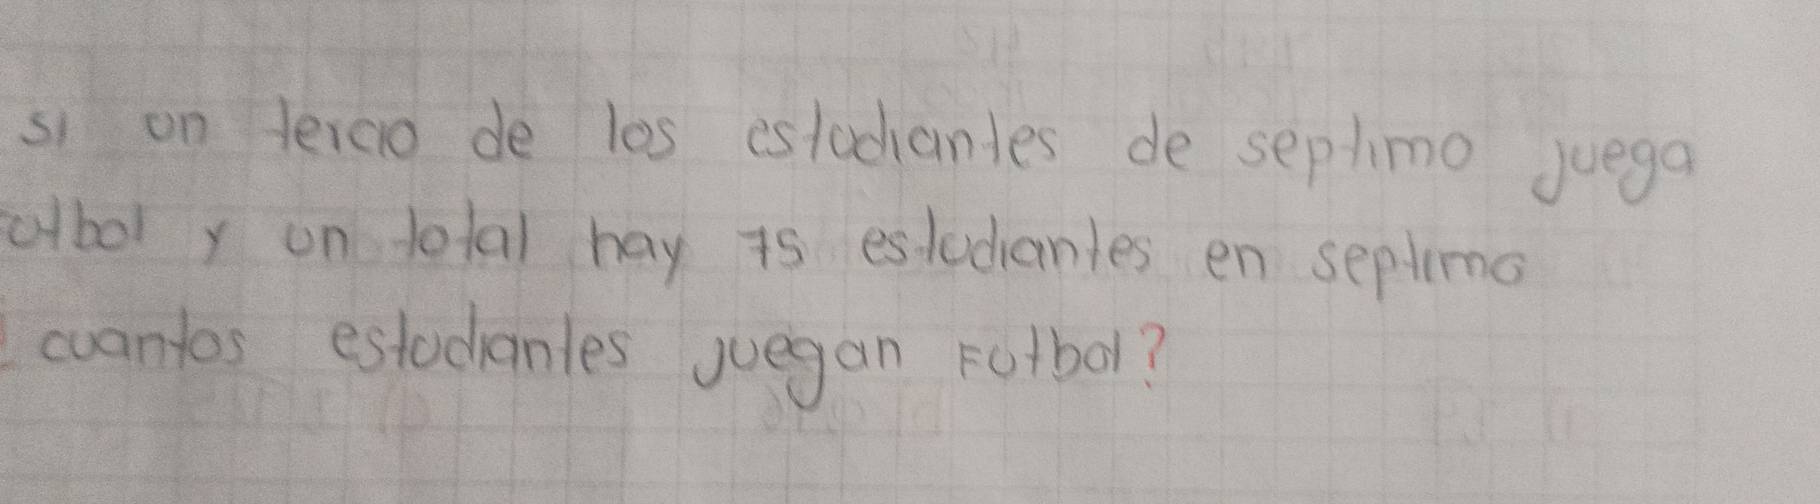 si un tercio de los estudiantes de septimo juega
Futbol y un total hay 75 estudiantes en septimo
¿cuantos estudiantes juegan Futbol?